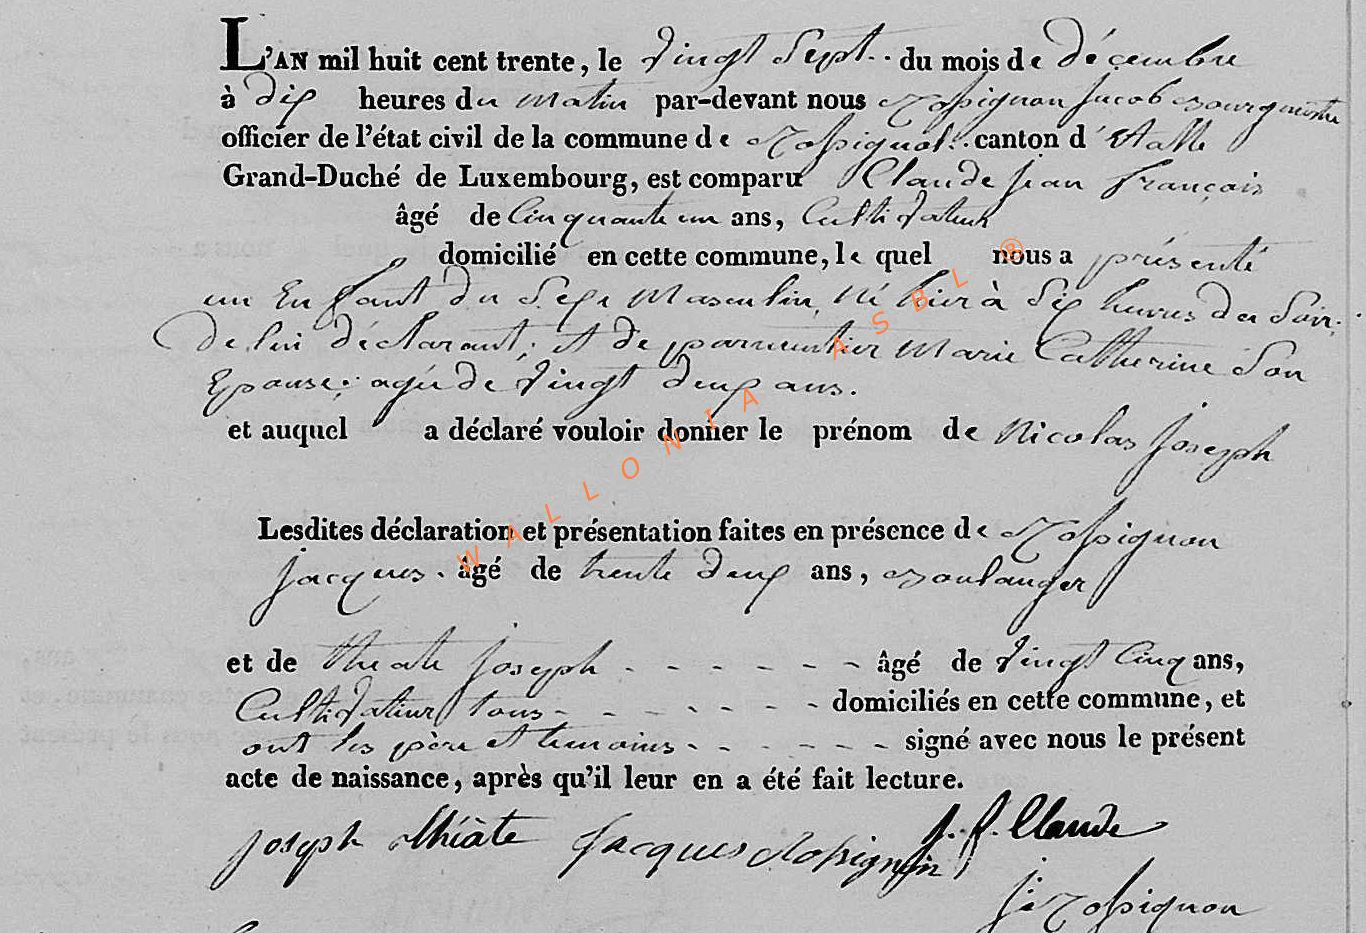 L'AN mil huit cent trente, le vingt Sept.. du mois de décembre
à dix heures du matin par-devant nous Rossignon Jacob Bourgmestre
officier de l'état civil de la commune de Rossignol. canton d'Etalle
Grand-Duché de Luxembourg, est comparu Claude Jean François
âgé de Cinquante un ans, Cultivateur
domicilié en cette commune, le quel nous a présenté
un Enfant du Sexe Masculin, Né hier à Six heures du Soir.
de lui déclarant; et de parmentier Marie Catherine Son
Epouse; agée de vingt deux ans.
et auquel a déclaré vouloir donner le prénom de Nicolas Joseph
Lesdites déclaration et présentation faites en présence de Rossignon
Jacques. âgé de trente deux ans, Boulanger
et de thiate Joseph - - - - - - - âgé de vingt Cinq ans,
Cultivateur tous - - - - - - - domiciliés en cette commune, et
ont les père et temoins - - - - - - signé avec nous le présent
acte de naissance, après qu'il leur en a été fait lecture.
Joseph thiàte Jacques Rossignon J. f. Claude
J: Rossignon
WALLONIA ASBL ®